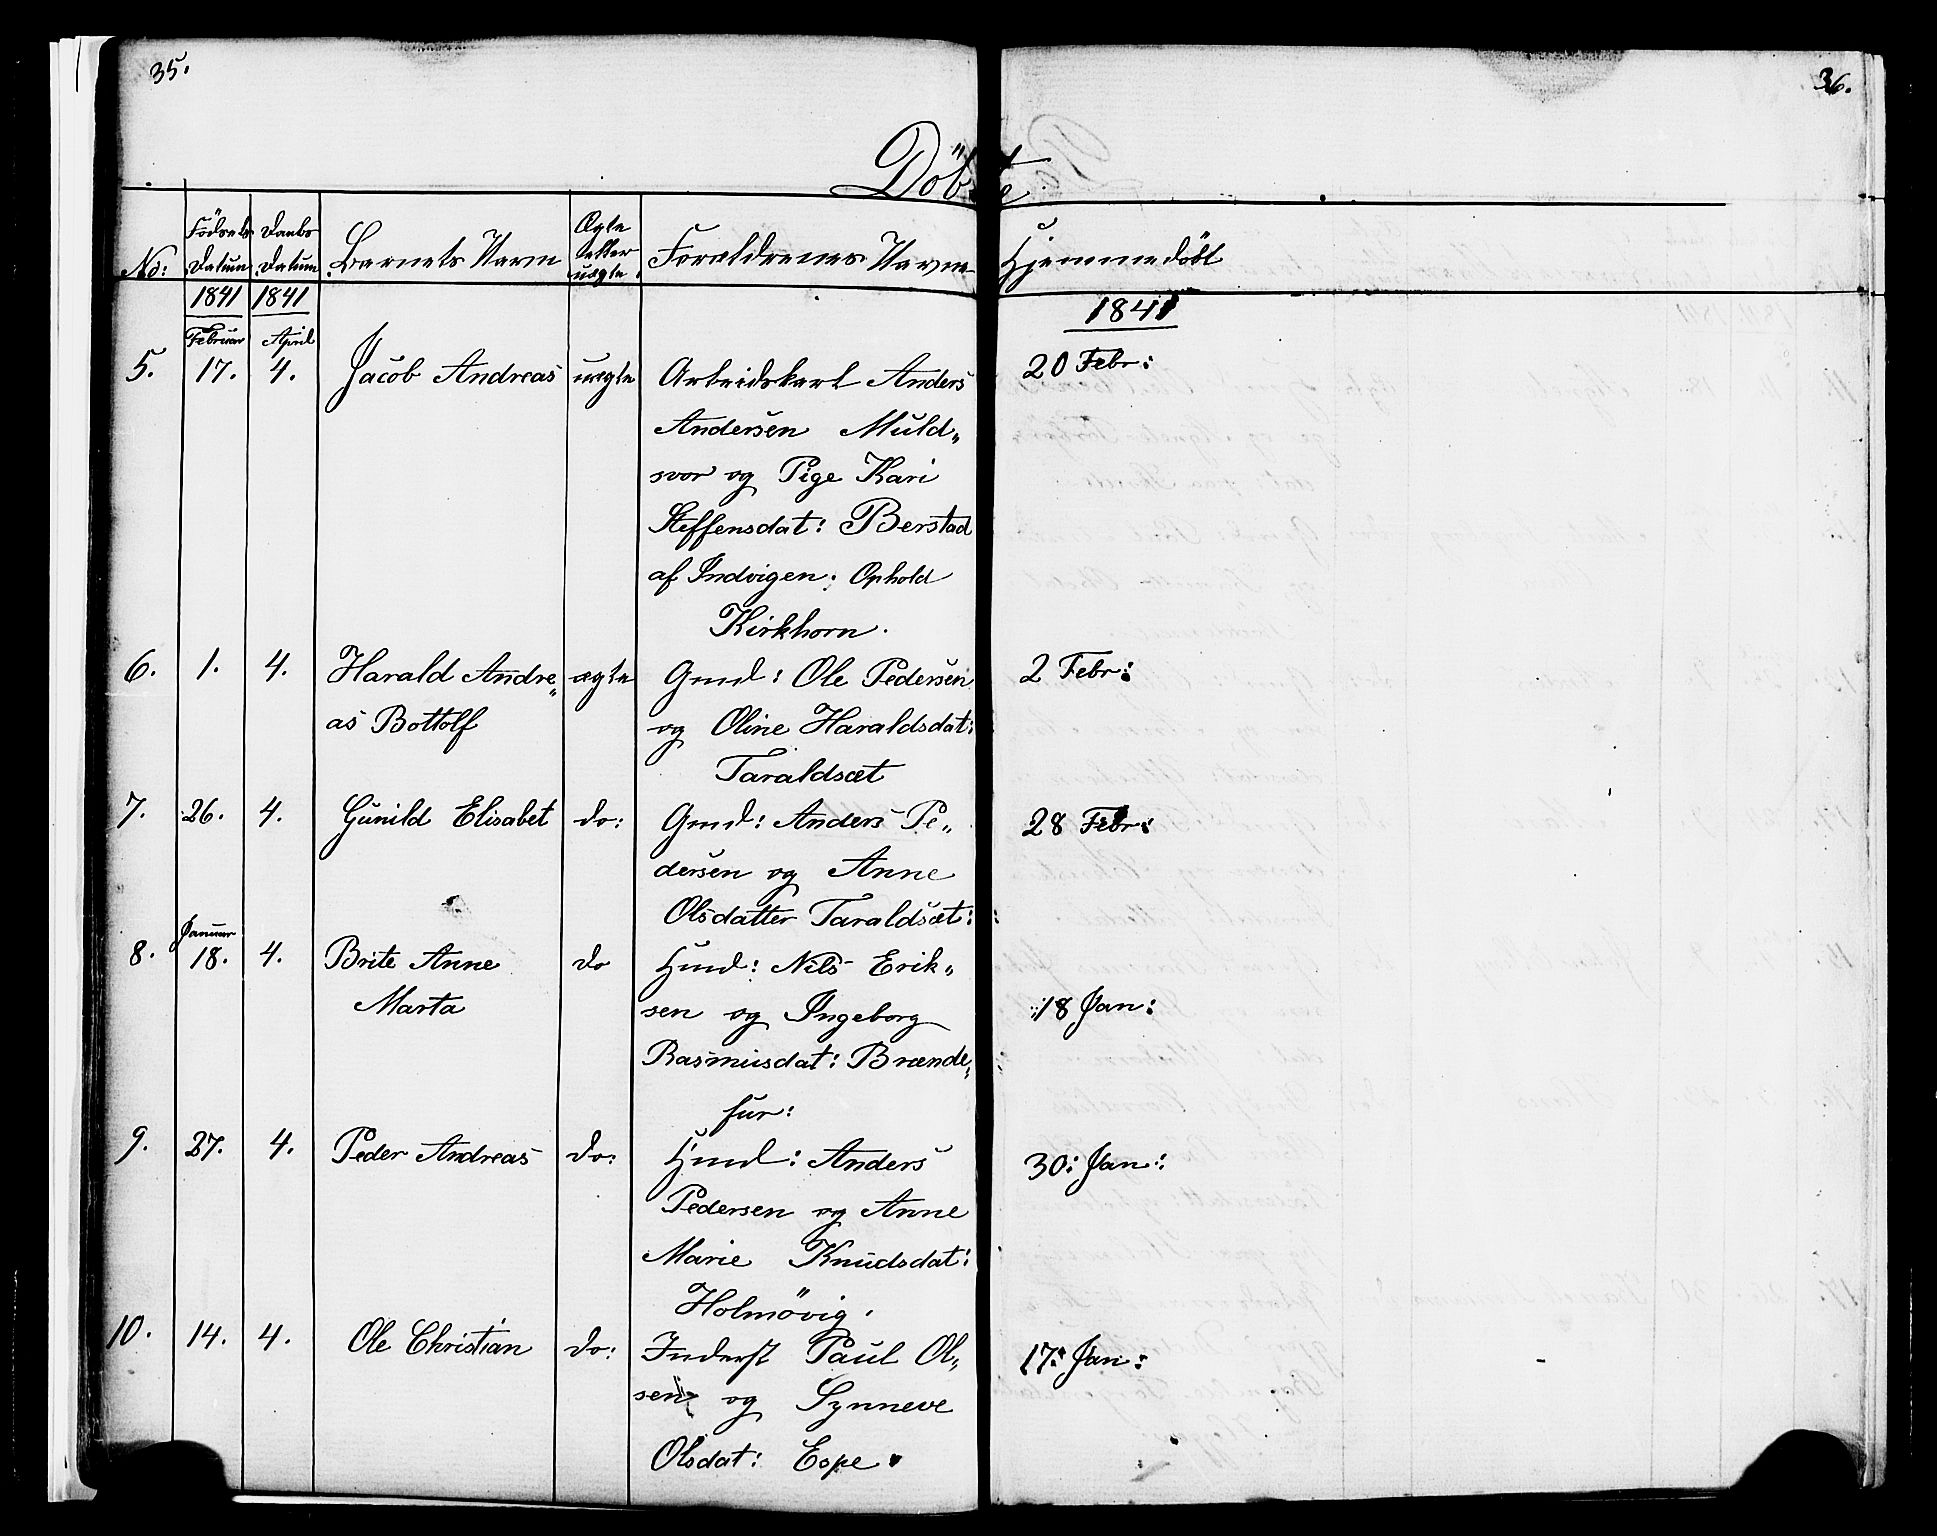 35.
36.
Döbte.
No: Födsels Datum Daabs Datum Barnets Navn Ægte eller uægte. Forældrenes Navne Hjemmedöbt
1841 1841 1841
Februar April
5. 17. 4. Jacob Andreas uægte Arbeidskarl Anders 20 Febr:
Andersen Muld„
svor og Pige Kari
Steffensdat: Berstad
af Indvigen: Ophold
Kirkhorn.
6. 1. 4. Harald Andre„ ægte Gmd: Ole Pedersen 2 Febr:
as Bottolf og Oline Haraldsdat:
Taraldsæt
7. 26. 4. Gunild Elisabet do: Gmd: Anders Pe„ 28 Febr:
dersen og Anne
Olsdatter Taraldsæt:
Januar
8. 18. 4. Brite Anne do Hmd: Nils Erik„
Marta sen og Ingeborg 18 Jan:
Rasmusdat: Brænde„
fur:
9. 27. 4. Peder Andreas do: Hmd: Anders 30: Jan:
Pedersen og Anne
Marie Knudsdat:
Holmövig.
10. 14. 4. Ole Christian do: Inderst Paul Ol„ 17: Jan:
sen og Synneve
Olsdat: Espe.